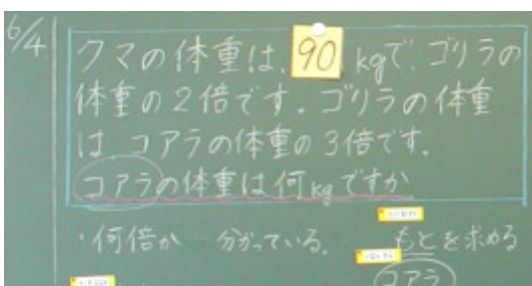 6/4
クマの体重は、90kgで、ゴリラの
体重の2倍です。ゴリラの体重
は、コアラの体重の3倍です。
コアラの体重は何kgですか
・何倍か 分かっている。 もとを求める
コアラ